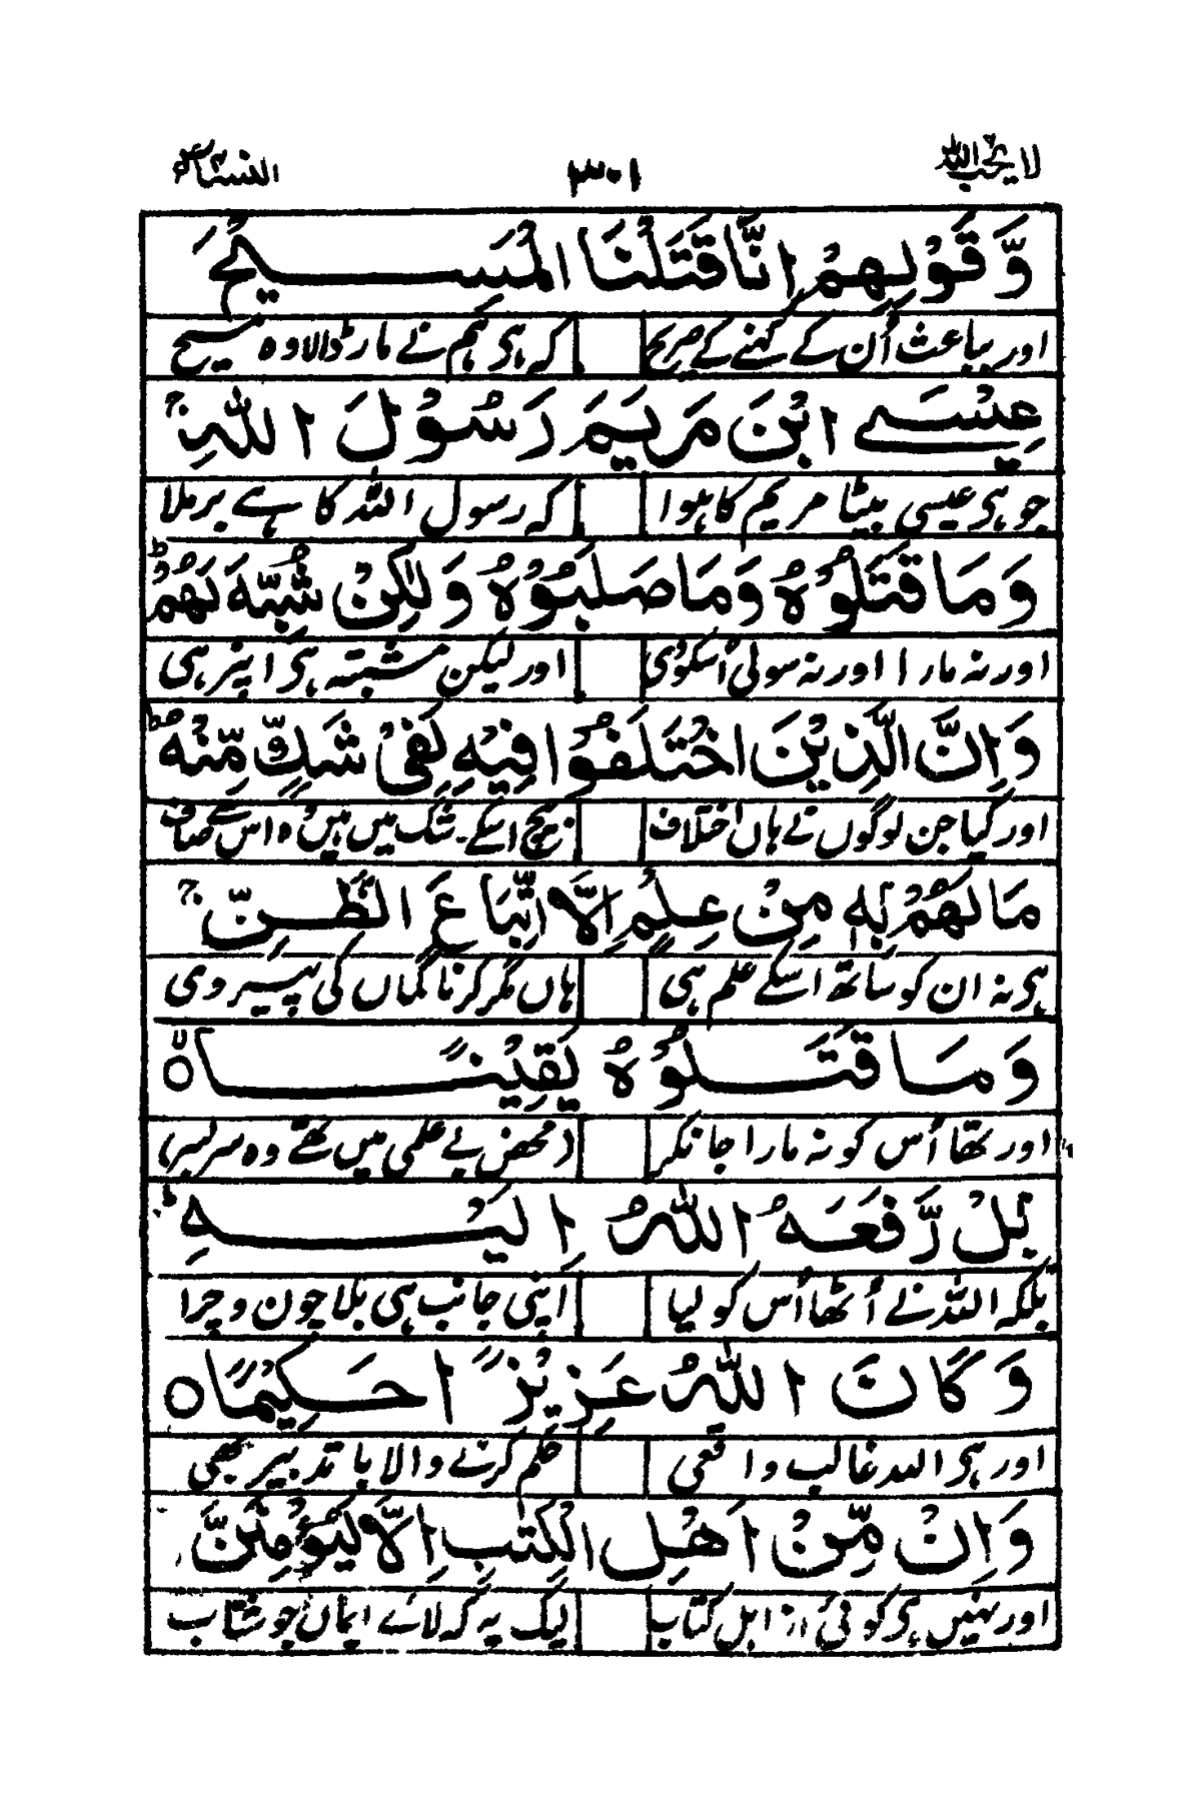 لا يحب الله ٣٠١ النساء ٤
وَّقَوْلِهِمْ اِنَّا قَتَلْنَا الْمَسِيْحَ
اور بباعث اُن کے کہنے کے صریح کہ ہی ہم نے مار ڈالا وہ مسیح
عِيْسَى ابْنَ مَرْيَمَ رَسُوْلَ اللّٰهِ ۚ
جو ہی عیسی بیٹا مریم کا ہوا کہ رسول اللہ کا ہے برملا
وَمَا قَتَلُوْهُ وَمَا صَلَبُوْهُ وَلٰكِنْ شُبِّهَ لَهُمْ ؕ
اور نہ مارا اور نہ سولی اُسکو دی اور لیکن مشتبہ ہی اپنر ہی
وَاِنَّ الَّذِيْنَ اخْتَلَفُوْا فِيْهِ لَفِيْ شَكٍّ مِّنْهُ ؕ
اور کیا جن لوگوں نے ہاں اختلاف بیچ اسکے شک میں ہیں وہ اس سے صاف
مَا لَهُمْ بِهٖ مِنْ عِلْمٍ اِلَّا اتِّبَاعَ الظَّنِّ ۚ
ہی نہ ان کو ساتھ اسکے علم ہی ہاں مگر کرنا گماں کی پیروی
وَمَا قَتَلُوْهُ يَقِيْنًا ۙ○
اور تھا اُس کو نہ مارا جانکر (محض بے علمی میں تھے وہ سربسر)
بَلْ رَّفَعَهُ اللّٰهُ اِلَيْهِ ؕ
بلکہ اللہ نے اُٹھا اُس کو لیا اپنی جانب ہی بلا چون و چرا
وَكَانَ اللّٰهُ عَزِيْزًا حَكِيْمًا ○
اور ہی اللہ غالب واقعی حکم کرنے والا با تدبیر بھی
وَاِنْ مِّنْ اَهْلِ الْكِتٰبِ اِلَّا لَيُؤْمِنَنَّ
اور نہیں ہی کوئی از اہل کتاب لیک یہ کہ لائے ایماں جو شتاب